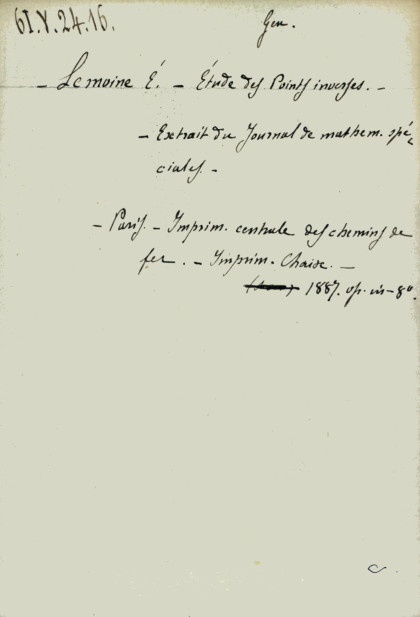 61.V.24.16.
Gen.
- Lemoine É. - Étude des Points inverses. -
- Extrait du Journal de mathem. spé-
ciales. -
- Paris. - Imprim. centrale des chemins de
fer. - Imprim. Chaix. -
1887. op. in-8°.